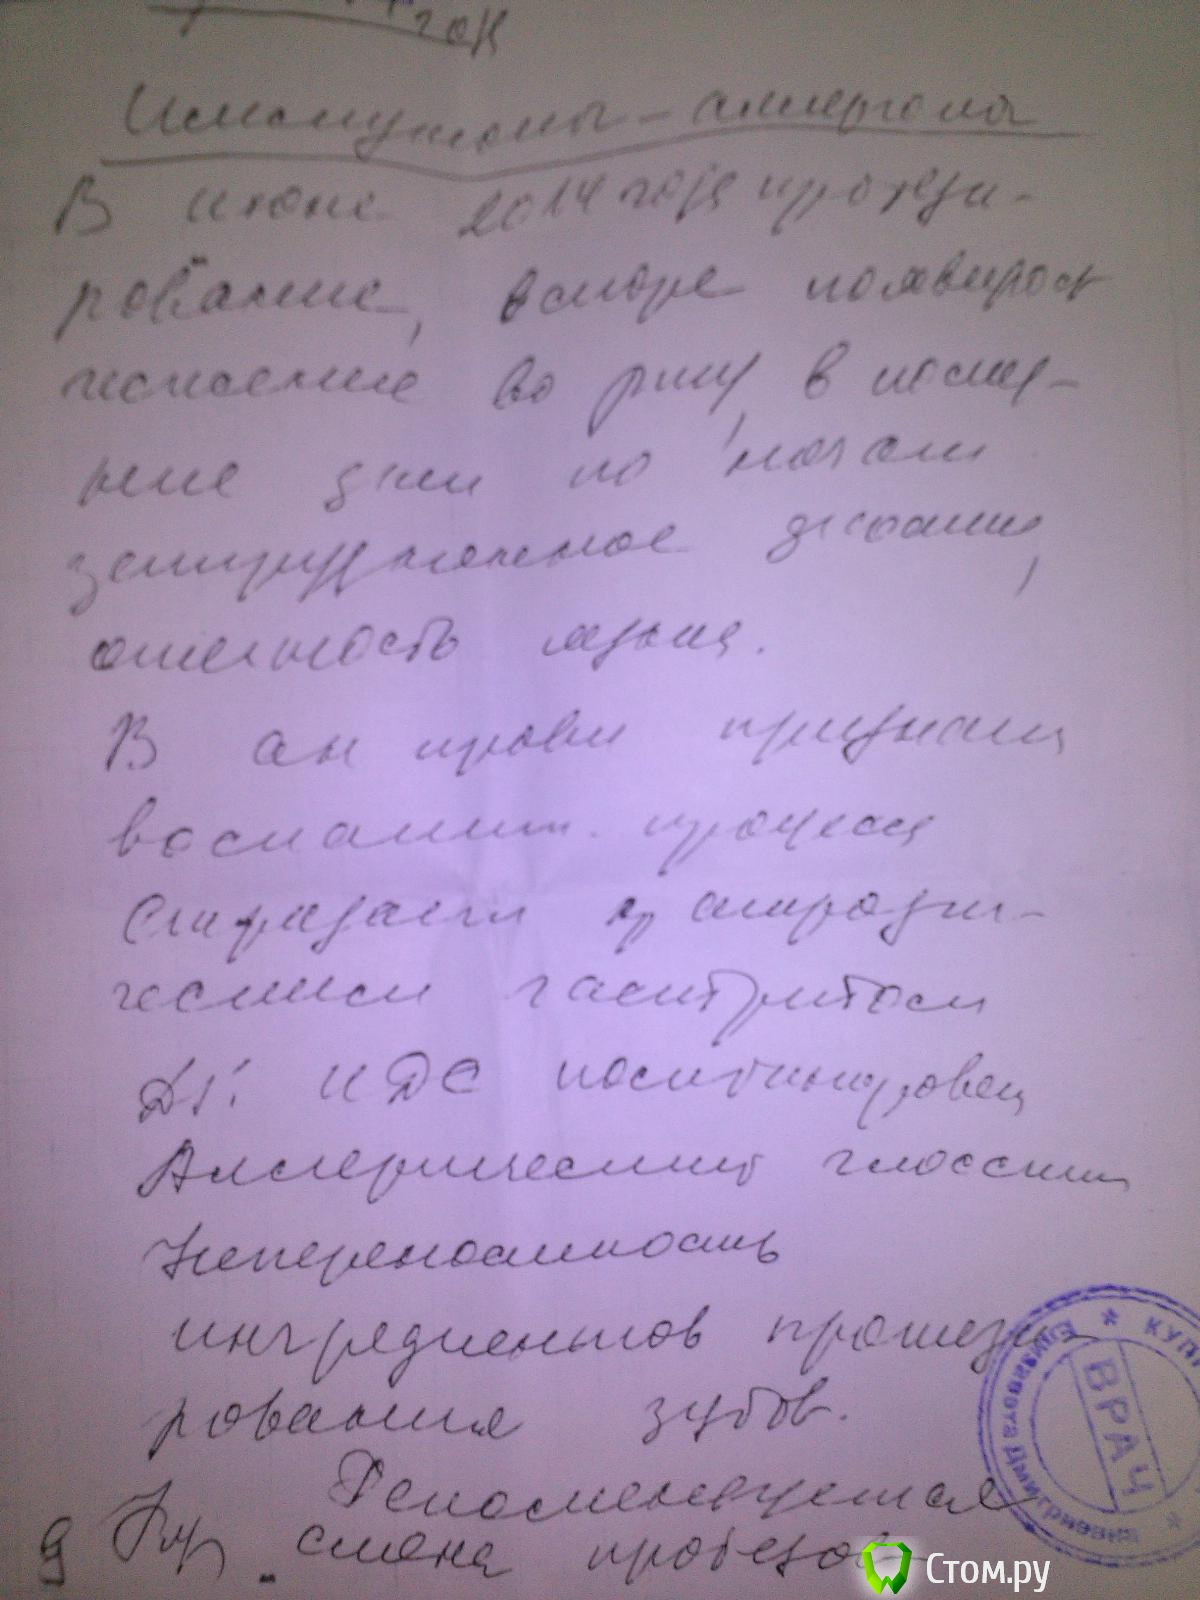 Иммунолог-аллерголог
В июне 2014 года протези-
рование, вскоре появилось
жжение во рту, в послед-
ние дни по ночам
затрудненное дыхание,
отечность языка.
В ан крови признаки
воспалит. процесса
Страдает хр атрофи-
ческим гастритом
Ds: ИДС
Аллергический глоссит
Непереносимость
ингредиентов протези-
рования зубов.
Рекомендуется
смена протезов
ВРАЧ
Елизавета Дмитриевна
Стом.ру